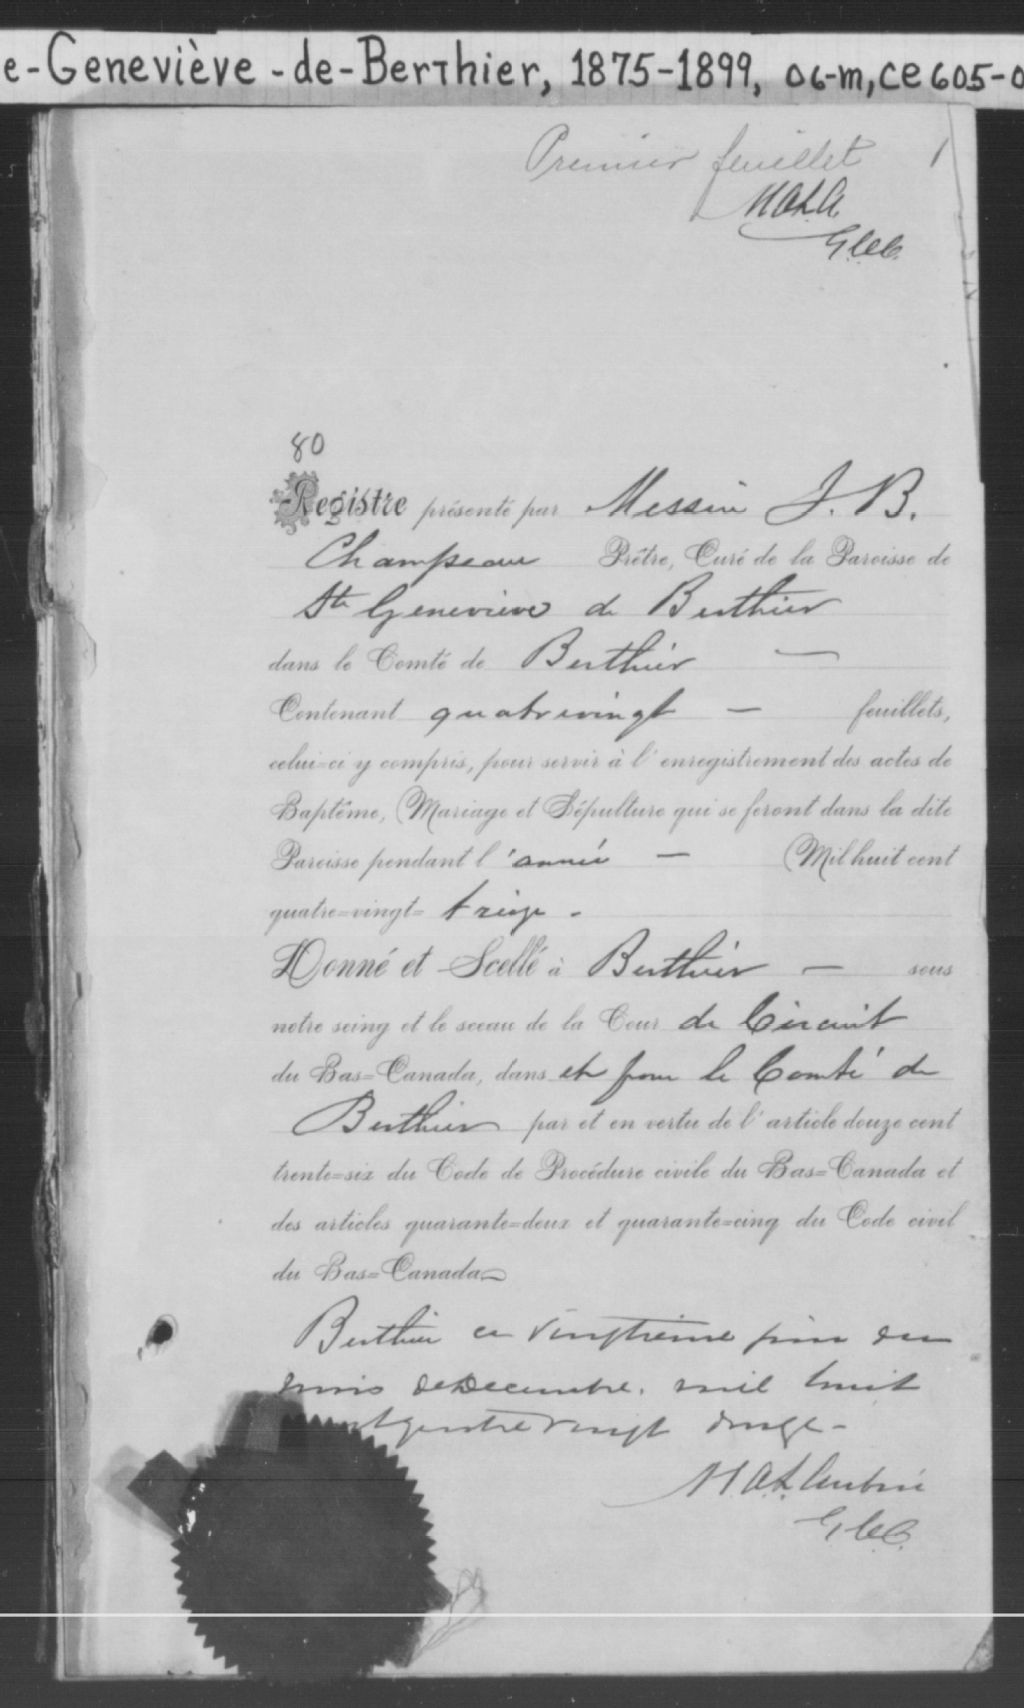 e-Geneviève-de-Berthier, 1875-1899, 06-m, ce 605-0
Premier feuillet 1
MALA
G.C.C.
80
Registre présenté par Messire J. B.
Champeau Prêtre, Curé de la Paroisse de
Ste Genevieve de Berthier
dans le Comté de Berthier —
Contenant quatrevingt — feuillets,
celui-ci y compris, pour servir à l'enregistrement des actes de
Baptême, Mariage et Sépulture qui se feront dans la dite
Paroisse pendant l'année — Mil huit cent
quatre-vingt- treize -
Donné et Scellé à Berthier — sous
notre seing et le sceau de la Cour de Circuit
du Bas-Canada, dans et pour le Comté de
Berthier par et en vertu de l'article douze cent
trente-six du Code de Procédure civile du Bas-Canada et
des articles quarante-deux et quarante-cinq du Code civil
du Bas-Canada
Berthier ce vingtieme jour du
mois de Decembre. mil huit
cent quatre vingt douze -
G.C.C.